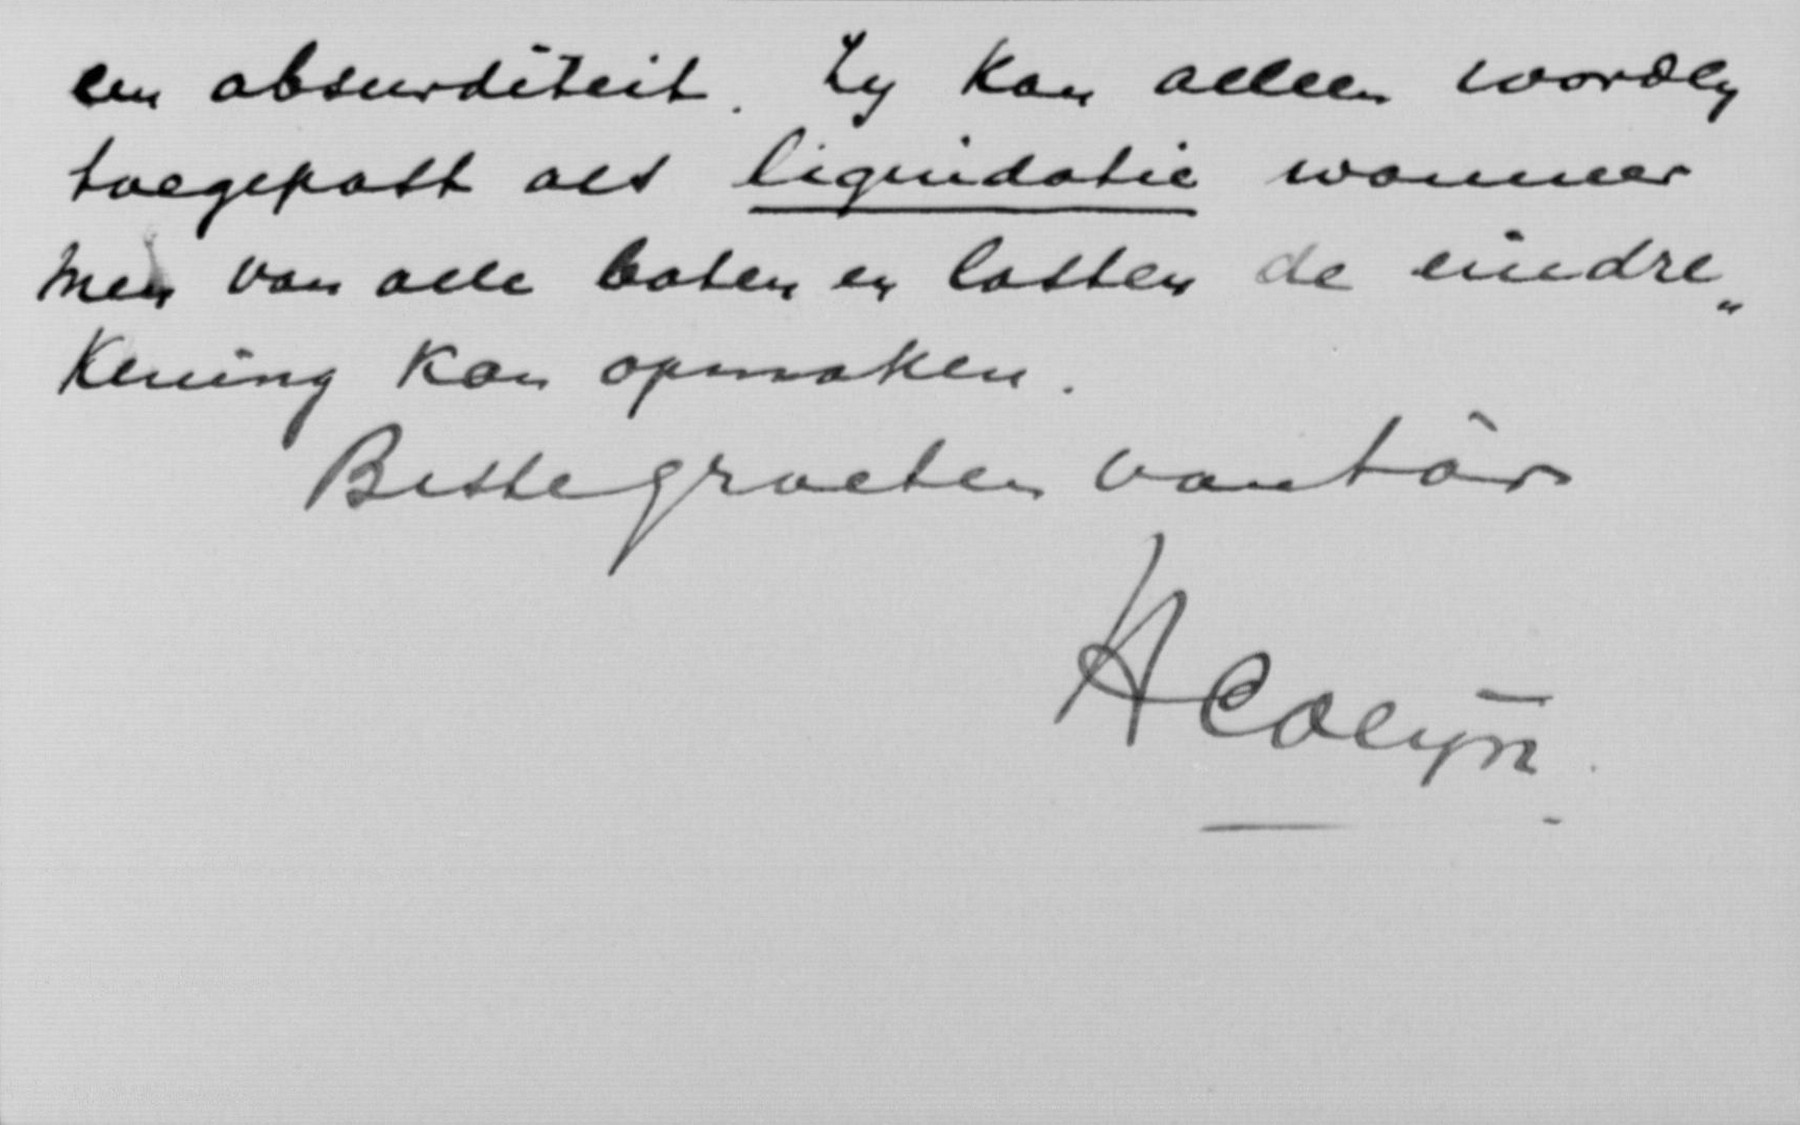 een absurditeit. Zy kan alleen worden
toegepast als liquidatie wanneer
men van alle baten en lasten de eindre„
kening kan opmaken.
Beste groeten van tàv
HColyn.